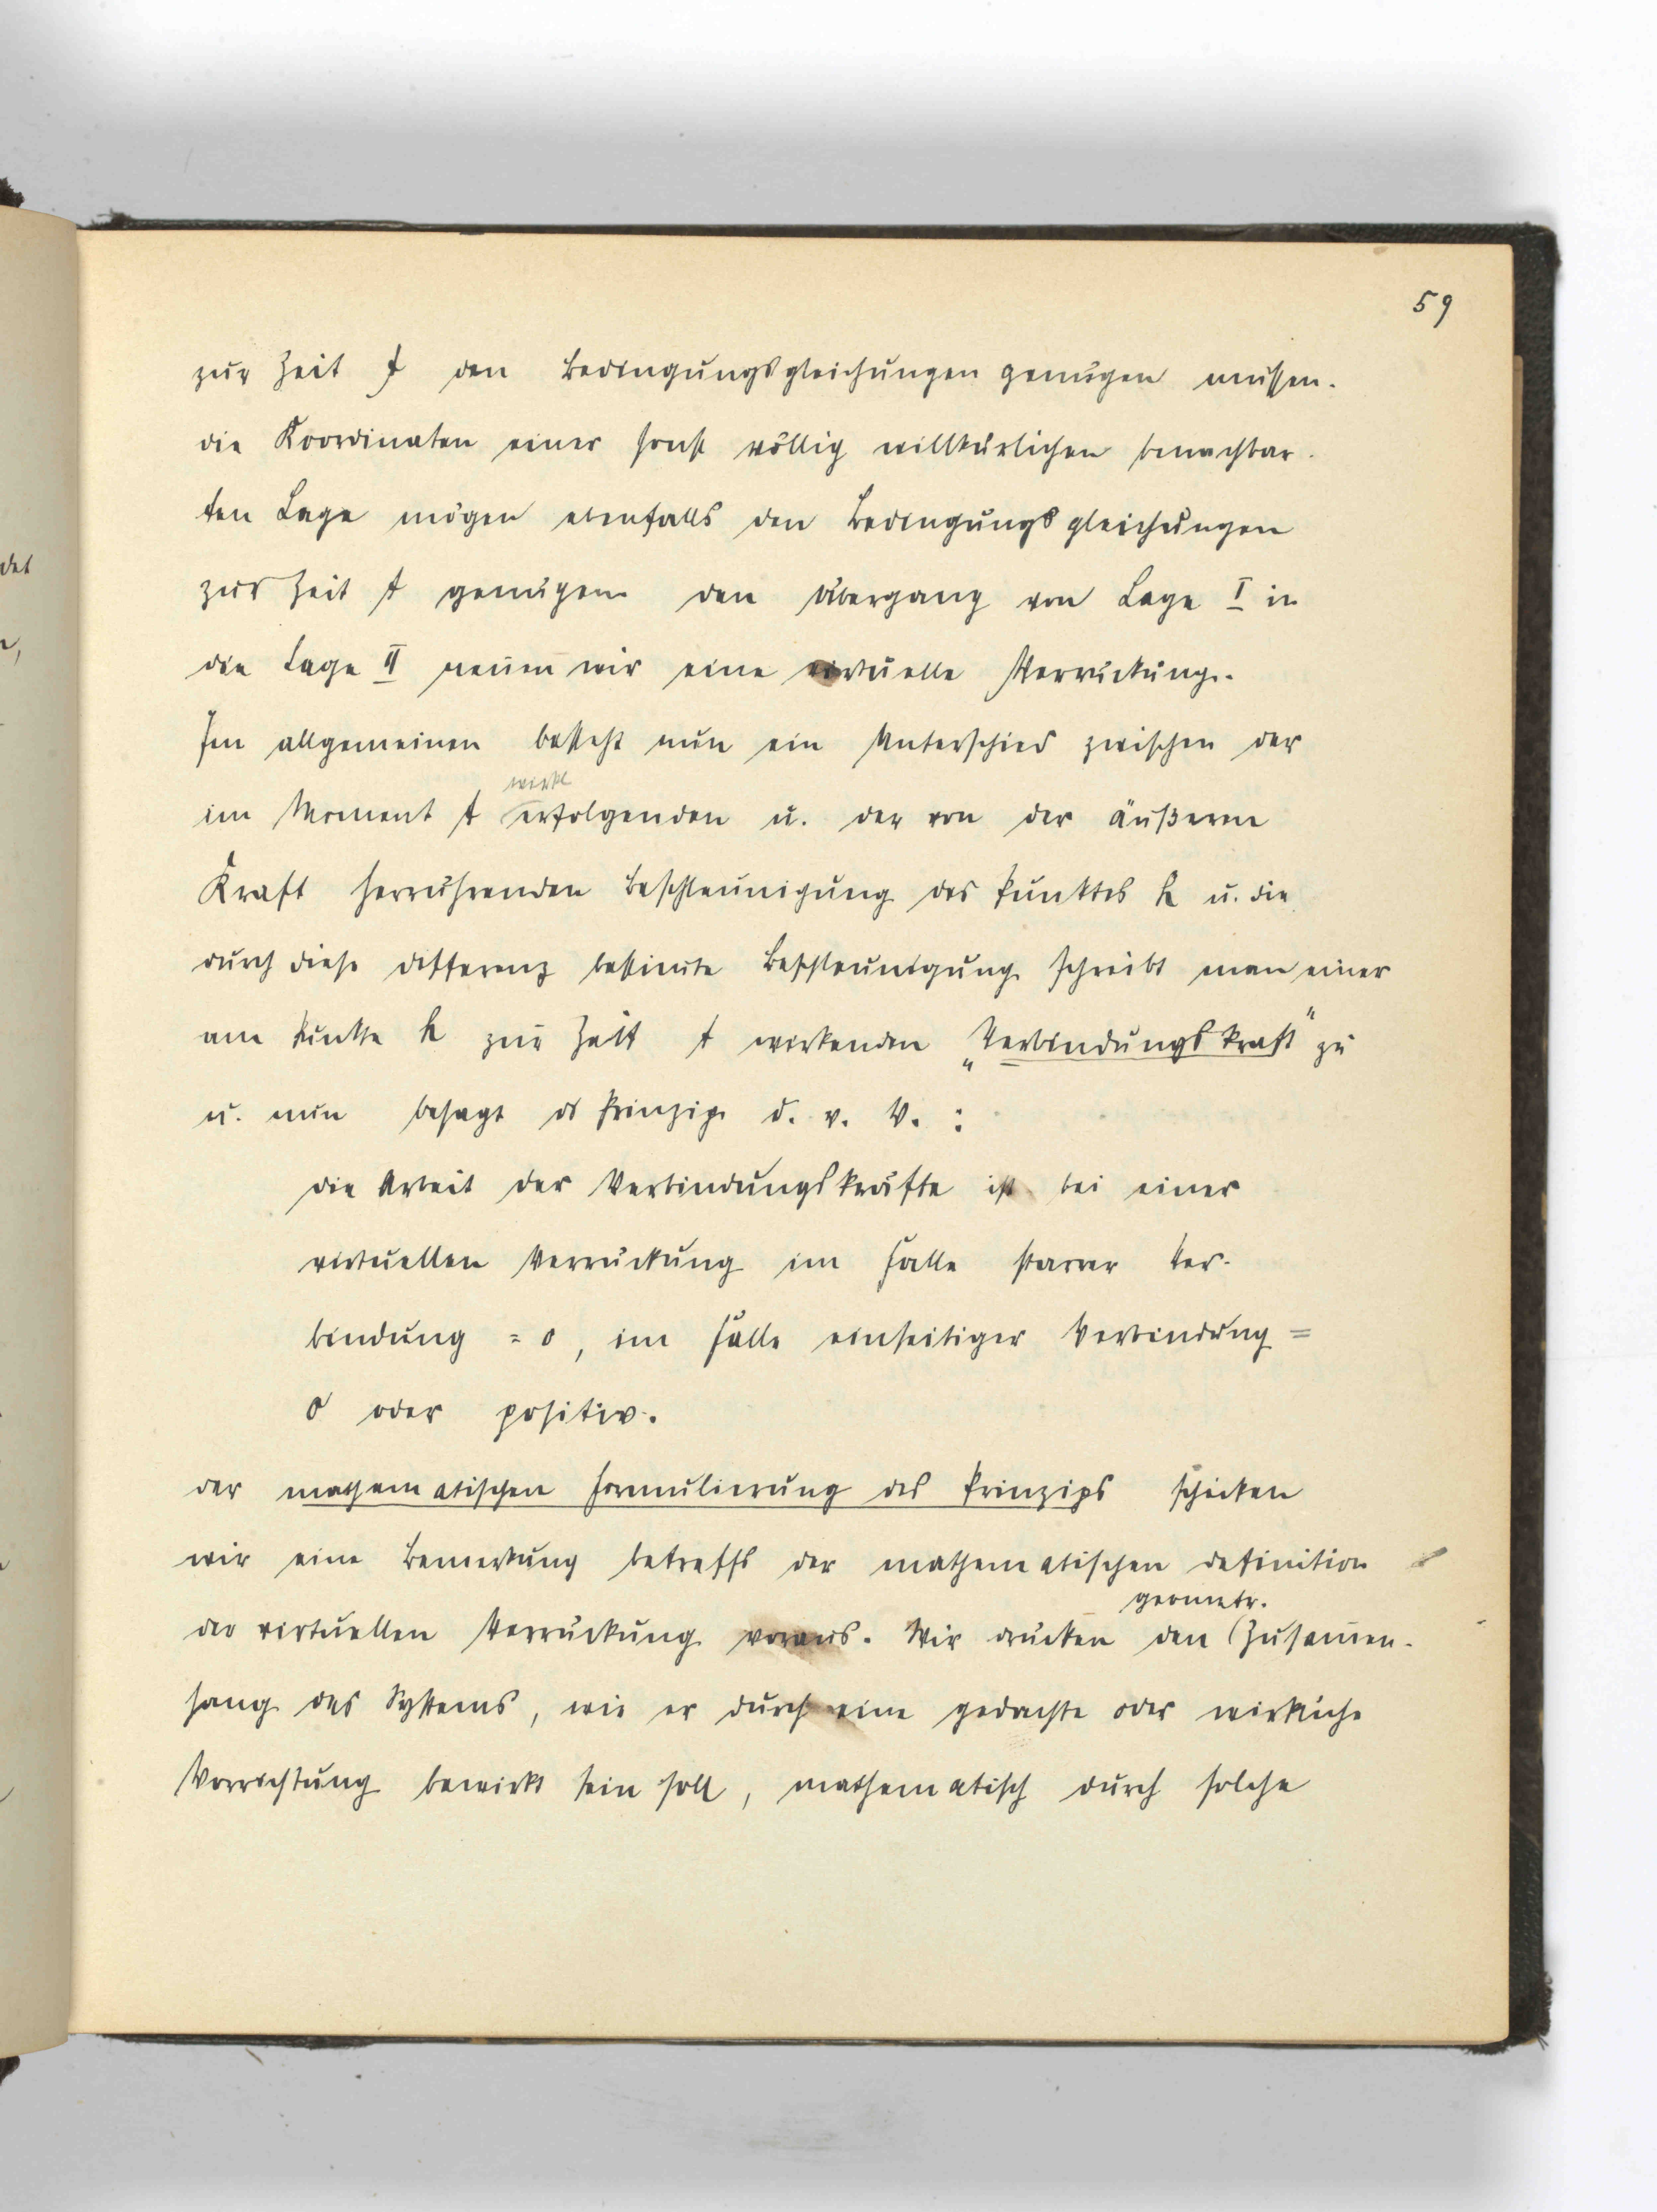 59
zur Zeit t den Bedingungsgleichungen genügen müssen.
die Koordinaten einer sonst völlig willkürlichen benachbar-
ten Lage mögen ebenfalls den Bedingungsgleichungen
zur Zeit t genügen den Übergang von Lage I in
die Lage II nennen wir eine virtuelle Verrückung.
Im allgemeinen besteht nun ein Unterschied zwischen der
wirkl
im Moment t erfolgenden u. der von der äußeren
Kraft herrührenden Beschleunigung des Punktes h u. die
durch diese Differenz bestimmte Beschleunigung schreibt man einer
am Punkte h zur Zeit t wirkenden „Verbindungskraft" zu
u. nun besagt ds Prinzip d. v. V. :
die Arbeit der Verbindungskräfte ist bei einer
virtuellen Verrückung im Falle starrer Ver-
bindung = 0, im Falle einseitiger Verbindung =
0 oder positiv.
der mathematischen Formulierung des Prinzips schicken
wir eine Bemerkung betreffs der mathematischen Definition
geometr.
der virtuellen Verrückung voraus. Wir drücken den (Zusammen-
hang des Systems, wie er durch eine gedachte oder wirkliche
Vorrichtung bewirkt sein soll, mathematisch durch solche
det
n,